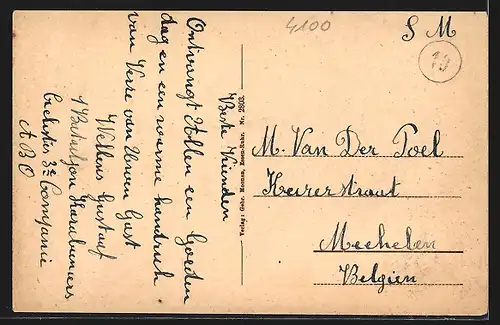 4100
S M
Beste Vrienden
Ontvangt Allen een Goeden
dag en een warme handruk
van Verre van Uwen Gust
Wellens Gustaaf
1 Bataljon Karabiniers
Cyclisten 3e Companie
A B O
Verlag: Gebr. Moenen, Essen-Ruhr. Nr. 2803.
M. Van Der Poel
Keizerstraat
Mechelen
Belgien